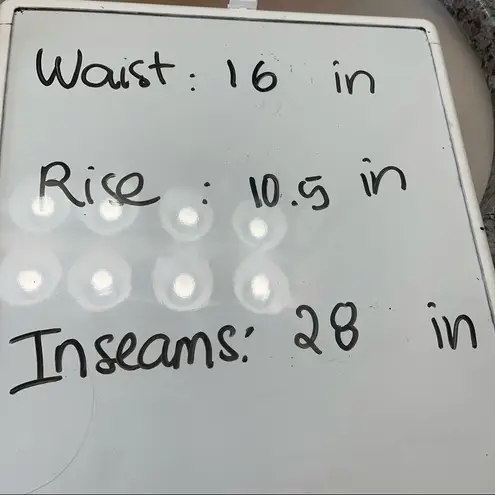 Waist: 16 in
Rise: 10.5 in
Inseams: 28 in